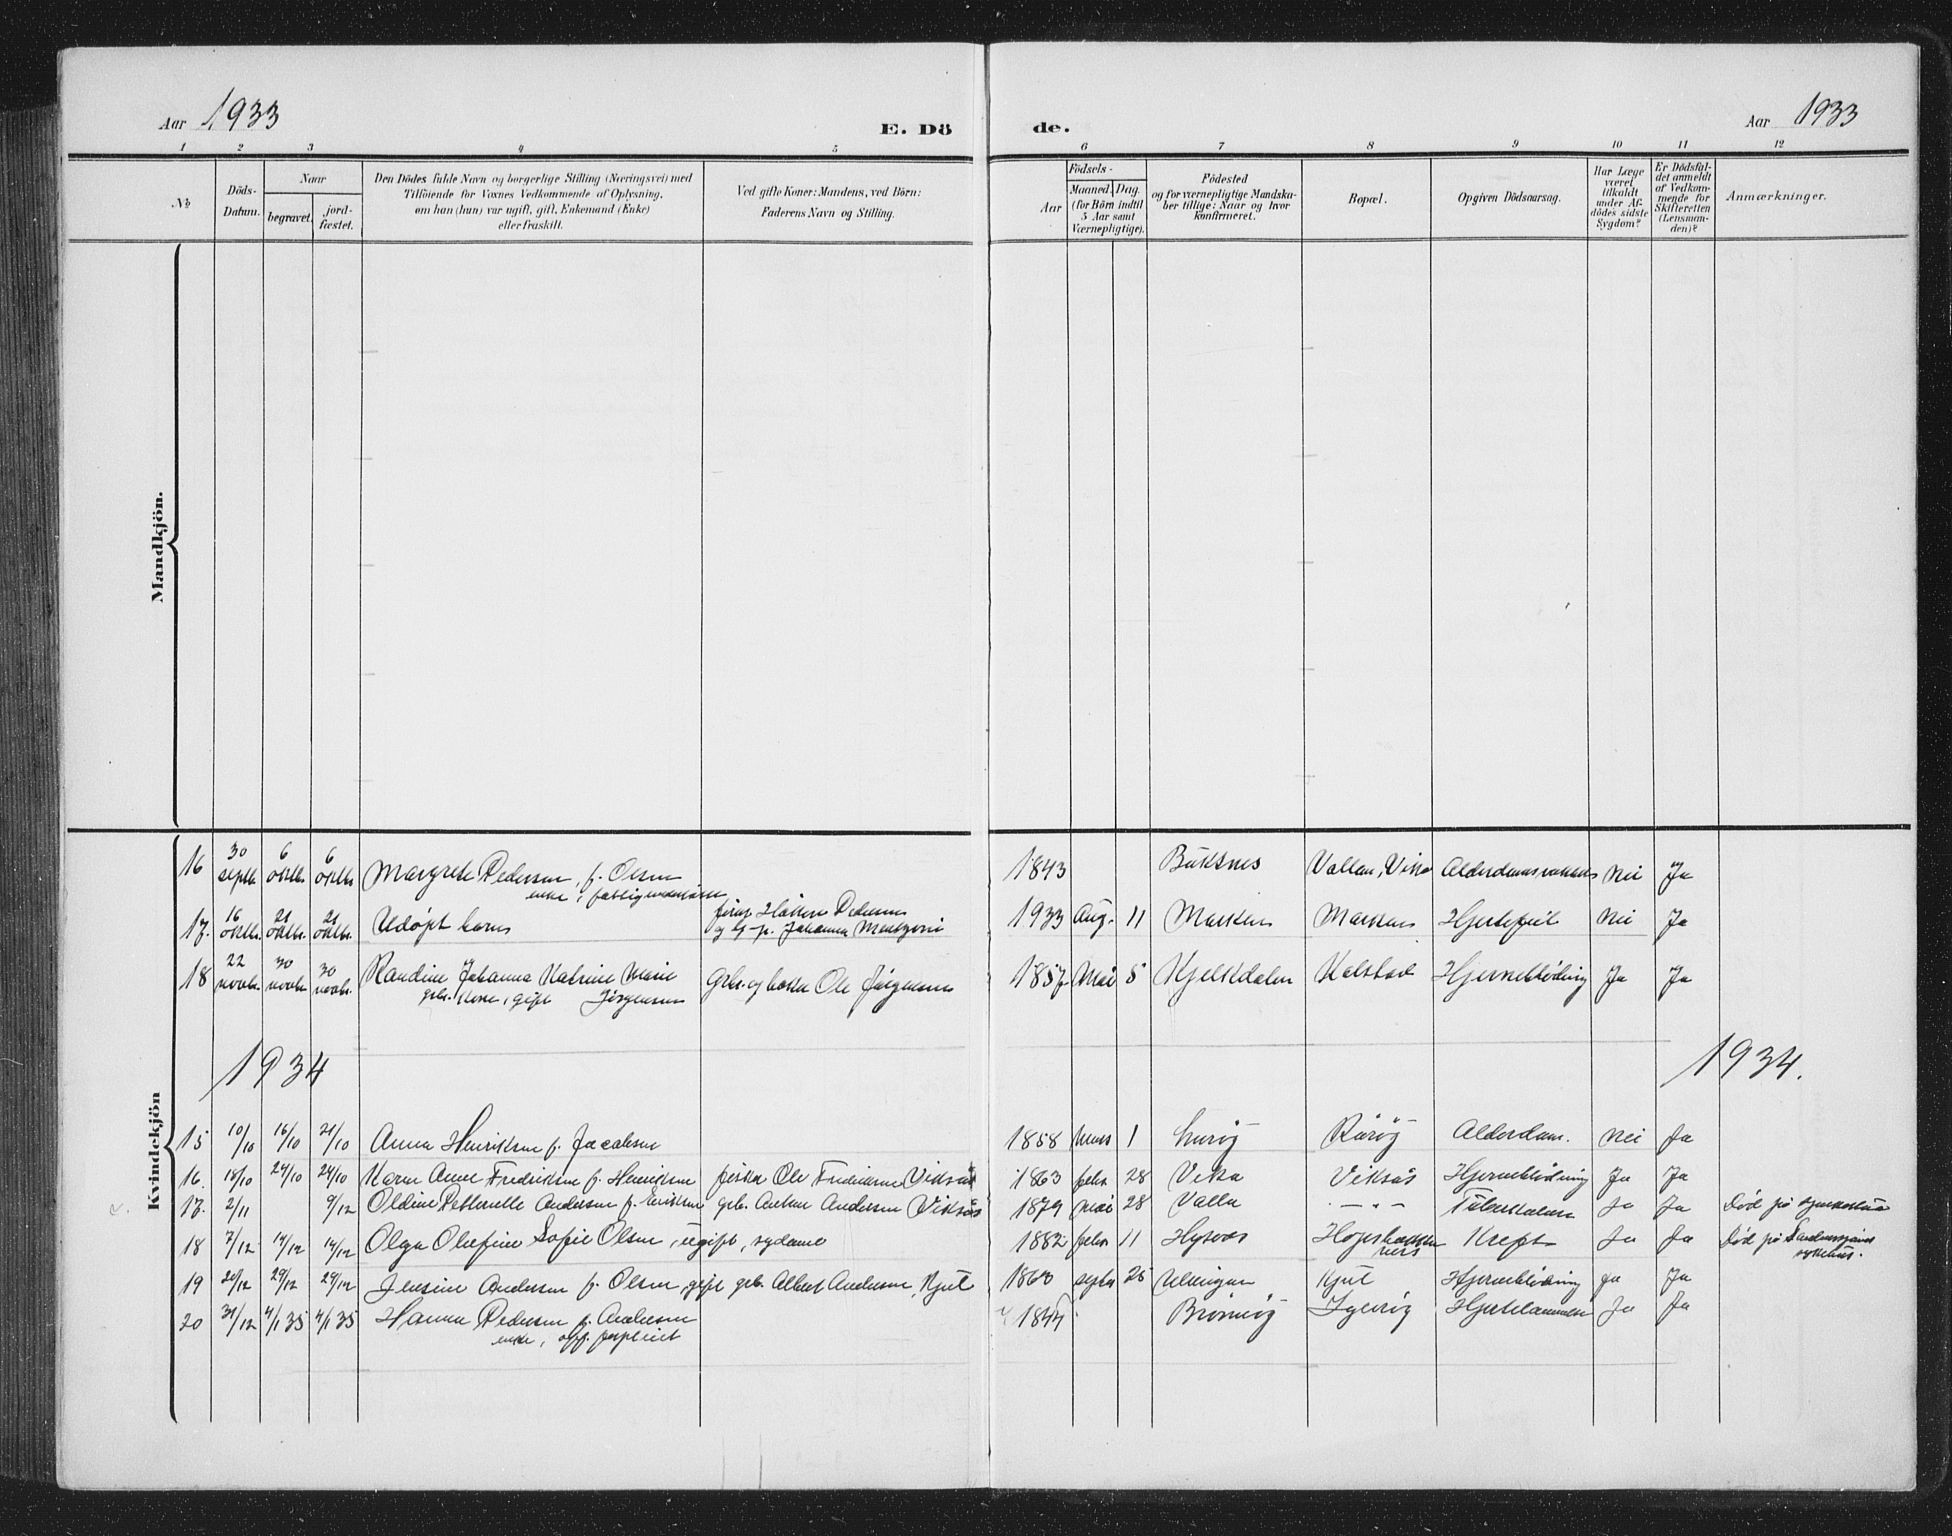 Aar 1933
E. Dö
de.
Aar 1933
1 2 3 4 5 6 7 8 9 10 11 12
No
Döds-
Datum.
Naar
begravet.
jord-
fæstet.
Den Dödes fulde Navn og borgerlige Stilling (Næringsvei) med
Tilföiende for Voxnes Vedkommende af Oplysning,
om han (hun) var ugift, gift, Enkemand (Enke)
eller fraskilt.
Ved gifte Koner: Mandens, ved Börn:
Faderens Navn og Stilling.
Födsels-
Aar
Maaned. Dag.
(for Börn indtil
5 Aar samt
Værnepligtige).
Födested
og for værnepligtige Mandska-
ber tillige: Naar og hvor
konfirmeret.
Bopæl.
Opgiven Dödsaarsag.
Har Læge
været
tilkaldt
under Af-
dödes sidste
Sygdom?
Er Dödsfal-
det anmeldt
af Vedkom-
mende for
Skifteretten
(Lensman-
den)?
Anmærkninger.
Mandkjön.
Kvindekjön
16 30 septb. 6 oktb. 6 oktb. Margrete Pedersen, f. Olsen 1843 Buksnes Vallan, Vika nei Ja
enke,
17. 16 oktb. 21 oktb. 21 oktb. Udøpt barn Håkon Pedersen 1933 Aug. 11 Hjertefeil nei Ja
Johanna
18 22 novbr. 30 novbr. 30 novbr. Randine Johanna Katrine Marie Ole Jørgensen 1857 Mai 5 Kjelkdalen Kalstad Hjerneblødning Ja Ja
gift Jørgensen
1934 1934.
15 10/10 16/10 21/10 Anna Henriksen f. Jacobsen 1858 mars 1 Lurøy Rørøy Alderdom. nei Ja
16. 18/10 24/10 24/10 Karen Anne Fredriksen f. Henriksen fisker Ole Fredriksen Viksås 1863 febr 28 Vika Viksås Hjerneblødning Ja Ja
17. 2/11 9/12 Oldine Petternelle Andersen f. Eriksen grb. Anton Andersen Viksås 1879 mai 28 Valla - " - Tuberkulose Ja Ja Död på sykestua
18 7/12 14/12 14/12 Olga Olefine Sofie Olsen, ugift, sydame 1882 febr 11 Kreft Ja Ja Död på Sandnessjøens
sykehus.
19 20/12 29/12 29/12 Jensine Andersen f. Olsen, gift grb. Albert Andersen, Kjul septbr 25 Kjul Hjerneblødning Ja Ja
20 31/12 4/1 35 4/1 35 Hanna Pedersen f. Andersen 1844 Brønnøy Ja Ja
enke, off. forpleiet